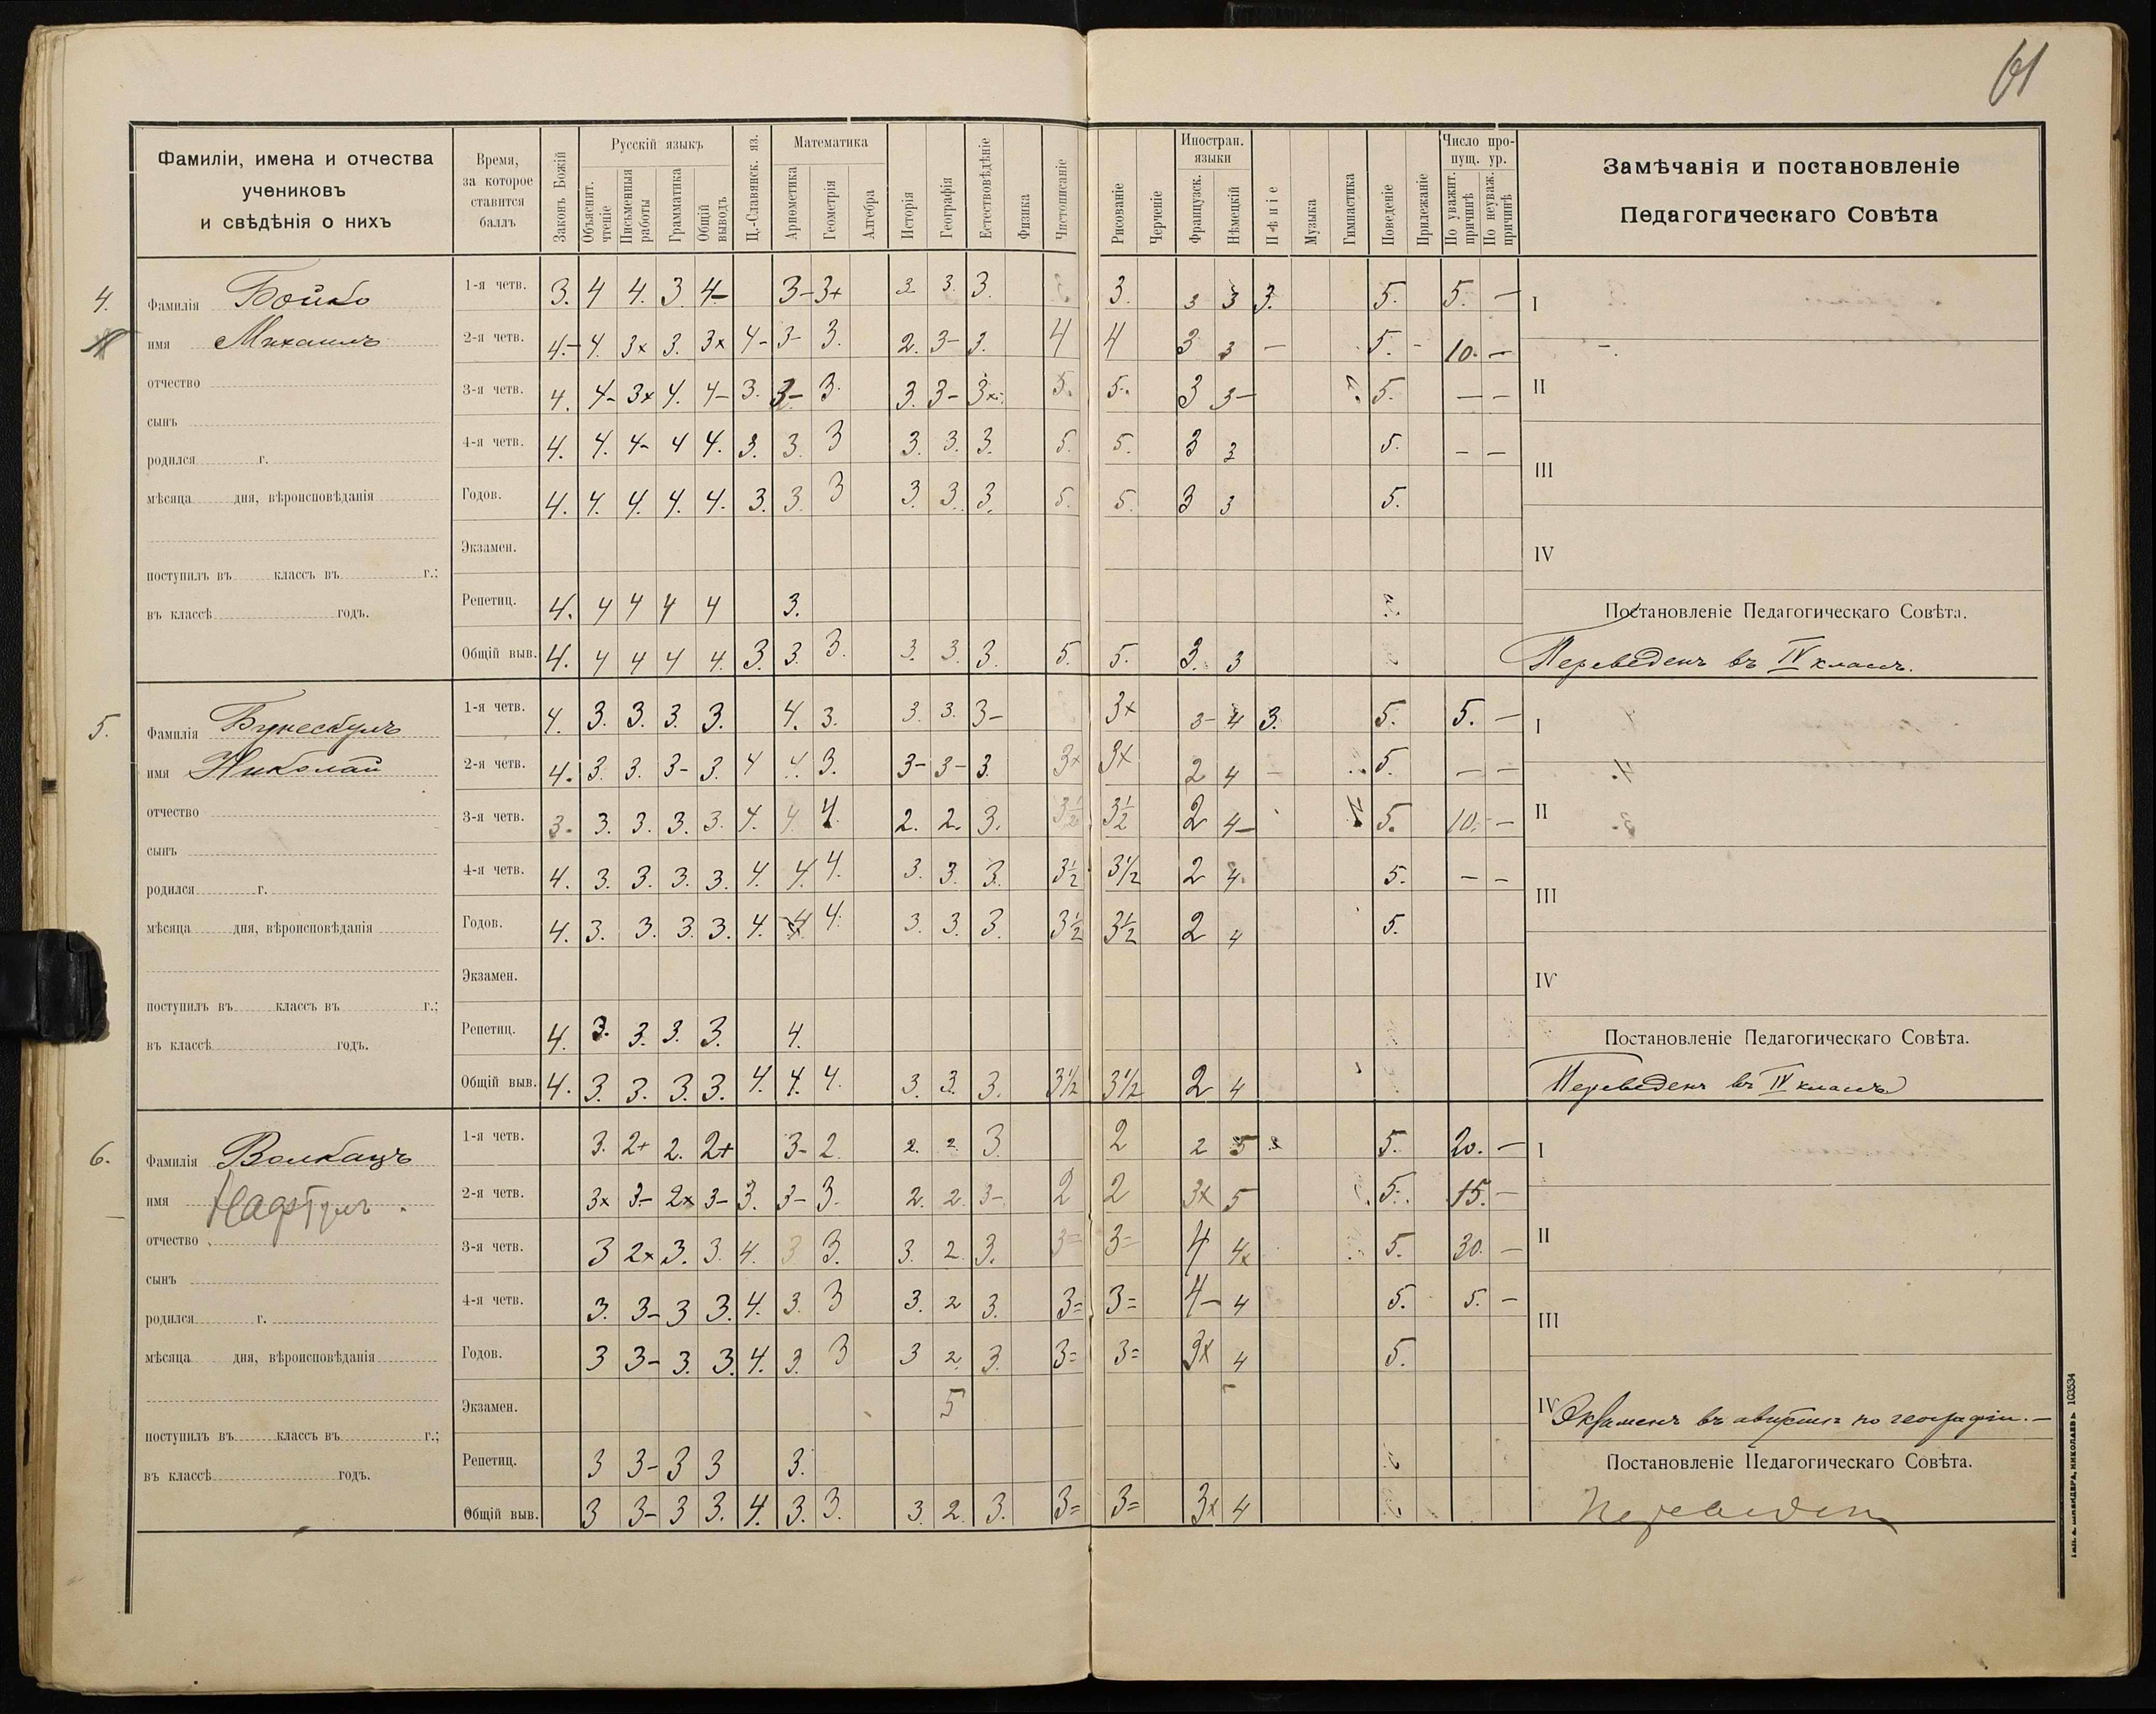 61
Фамиліи, имена и отчества
учениковъ
и свѣдѣнія о нихъ
Время,
за которое
ставится
баллъ
Законъ Божій
Русскій языкъ
Объяснит. чтеніе
Письменныя работы
Грамматика
Общій выводъ
Ц.-Славянск. яз.
Математика
Ариѳметика
Геометрія
Алгебра
Исторія
Географія
Естествовѣдѣніе
Физика
Чистописаніе
Рисованіе
Черченіе
Иностран. языки
Французск.
Нѣмецкій
Пѣніе
Музыка
Гимнастика
Поведеніе
Прилежаніе
Число пропущ. ур.
По уважит. причинѣ
По неуваж. причинѣ
Замѣчанія и постановленіе
Педагогическаго Совѣта
4.
Фамилія Бойко
имя Михаилъ
отчество
сынъ
родился г.
мѣсяца дня, вѣроисповѣданія
поступилъ въ классъ въ г.;
въ классѣ годъ.
1-я четв. 3. 4 4. 3 4- 3- 3+ 3. 3. 3. 3 3 3. 5. 5. —
2-я четв. 4.- 4. 3x 3. 3x 4- 3- 3. 2. 3- 3. 4 4 3 3 — 5. - 10. —
3-я четв. 4. 4- 3x 4. 4- 3. 3- 3. 3. 3- 3x. 5. 5. 3 3- 5. — —
4-я четв. 4. 4. 4- 4 4. 3. 3. 3 3. 3. 3. 5. 5. 3 3 5. — —
Годов. 4. 4. 4. 4. 4. 3. 3. 3 3. 3. 3. 5. 5. 3 3 5.
Экзамен.
Репетиц. 4. 4 4 4 4 3.
Общій выв. 4. 4 4 4 4. 3. 3. 3. 3. 3. 3. 5. 5. 3. 3
I
II
III
IV
Постановленіе Педагогическаго Совѣта.
Переведенъ въ IV классъ.
5.
Фамилія
имя Николай
отчество
сынъ
родился г.
мѣсяца дня, вѣроисповѣданія
поступилъ въ классъ въ г.;
въ классѣ годъ.
1-я четв. 4. 3. 3. 3. 3. 4. 3. 3. 3. 3- 3x 3- 4 3. 5. 5. —
2-я четв. 4. 3. 3. 3- 3. 4 4 3. 3- 3- 3. 3x 3x 2 4 — 5. — —
3-я четв. 3. 3. 3. 3. 3. 4. 4 4. 2. 2. 3. 3½ 3½ 2 4- 5. 10. —
4-я четв. 4. 3. 3. 3. 3. 4. 4. 4. 3. 3. 3. 3½ 3½ 2 4. 5. — —
Годов. 4. 3. 3. 3. 3. 4. 4 4. 3. 3. 3. 3½ 3½ 2 4 5.
Экзамен.
Репетиц. 4. 3. 3. 3. 3. 4.
Общій выв. 4. 3. 3. 3. 3. 4. 4. 4. 3. 3. 3. 3½ 3½ 2 4
I
II
III
IV
Постановленіе Педагогическаго Совѣта.
Переведенъ въ IV классъ
6.
Фамилія Волкацъ
имя
отчество
сынъ
родился г.
мѣсяца дня, вѣроисповѣданія
поступилъ въ классъ въ г.;
въ классѣ годъ.
1-я четв. 3. 2+ 2. 2+ 3- 2. 2. 2. 3. 2 2 5 5. 20. —
2-я четв. 3x 3- 2x 3- 3. 3- 3. 2. 2. 3- 2 2 3x 5 5. 15. —
3-я четв. 3 2x 3. 3. 4. 3 3. 3. 2. 3. 3= 3= 4 4x 5. 30. —
4-я четв. 3. 3- 3 3. 4. 3. 3 3. 2 3. 3= 3= 4- 4 5. 5. —
Годов. 3 3- 3. 3. 4. 3. 3 3 2. 3. 3= 3= 3x 4 5.
Экзамен. 5
Репетиц. 3 3- 3 3 3.
Общій выв. 3 3- 3 3. 4. 3. 3. 3. 2. 3. 3= 3= 3x 4
I
II
III
IV Экзаменъ въ августѣ по географіи. —
Постановленіе Педагогическаго Совѣта.
Переведен